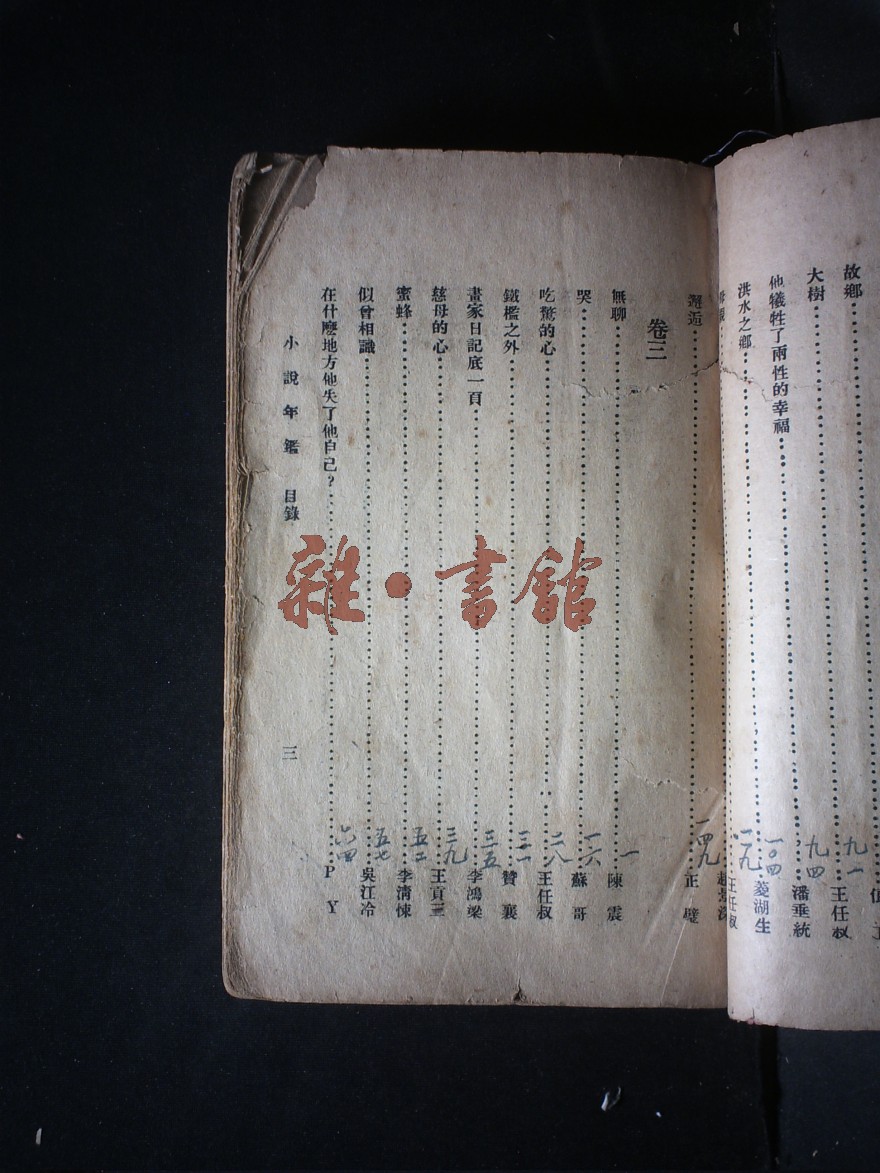 故鄉 九一
大樹 九四 王任叔
他犧牲了兩性的幸福 一〇四 潘垂統
洪水之鄉 菱湖生
王任叔
邂逅 一四九 正璧
卷三
無聊 一 陳震
哭 一六 蘇哥
吃驚的心 二八 王任叔
鐵檻之外 三一 贊襄
畫家日記底一頁 三五 李鴻梁
慈母的心 三九 王貢三
蜜蜂 五二 李淸悚
似曾相識 五七 吳江冷
在什麽地方他失了他自己？ 六四 P Y
小說年鑑 目錄 三
雜·書館